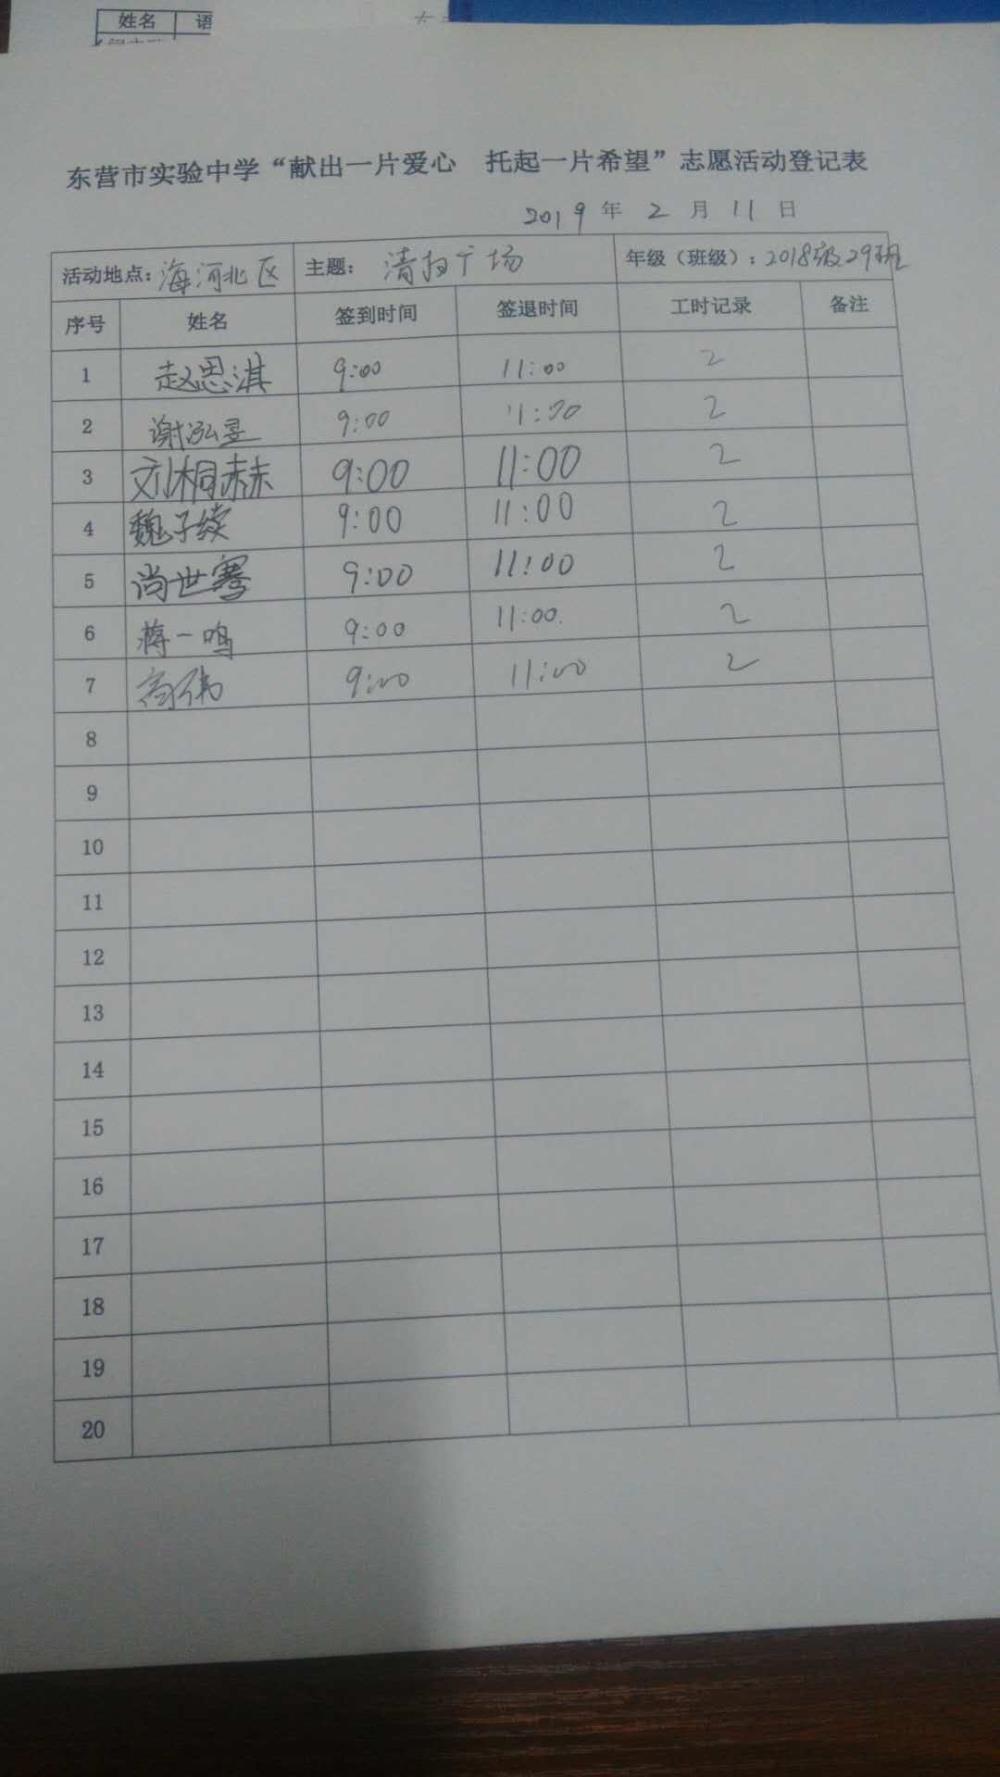 姓名 语
东营市实验中学“献出一片爱心 托起一片希望”志愿活动登记表
2019 年 2 月 11 日
活动地点: 海河北区 主题: 清扫广场 年级（班级）: 2018级29班
序号 姓名 签到时间 签退时间 工时记录 备注
1 赵思淇 9:00 11:00 2
2 谢泓昱 9:00 11:00 2
3 刘桐赫 9:00 11:00 2
4 魏子续 9:00 11:00 2
5 尚世骞 9:00 11:00 2
6 蒋一鸣 9:00 11:00. 2
7 高伟 9:00 11:00 2
8
9
10
11
12
13
14
15
16
17
18
19
20